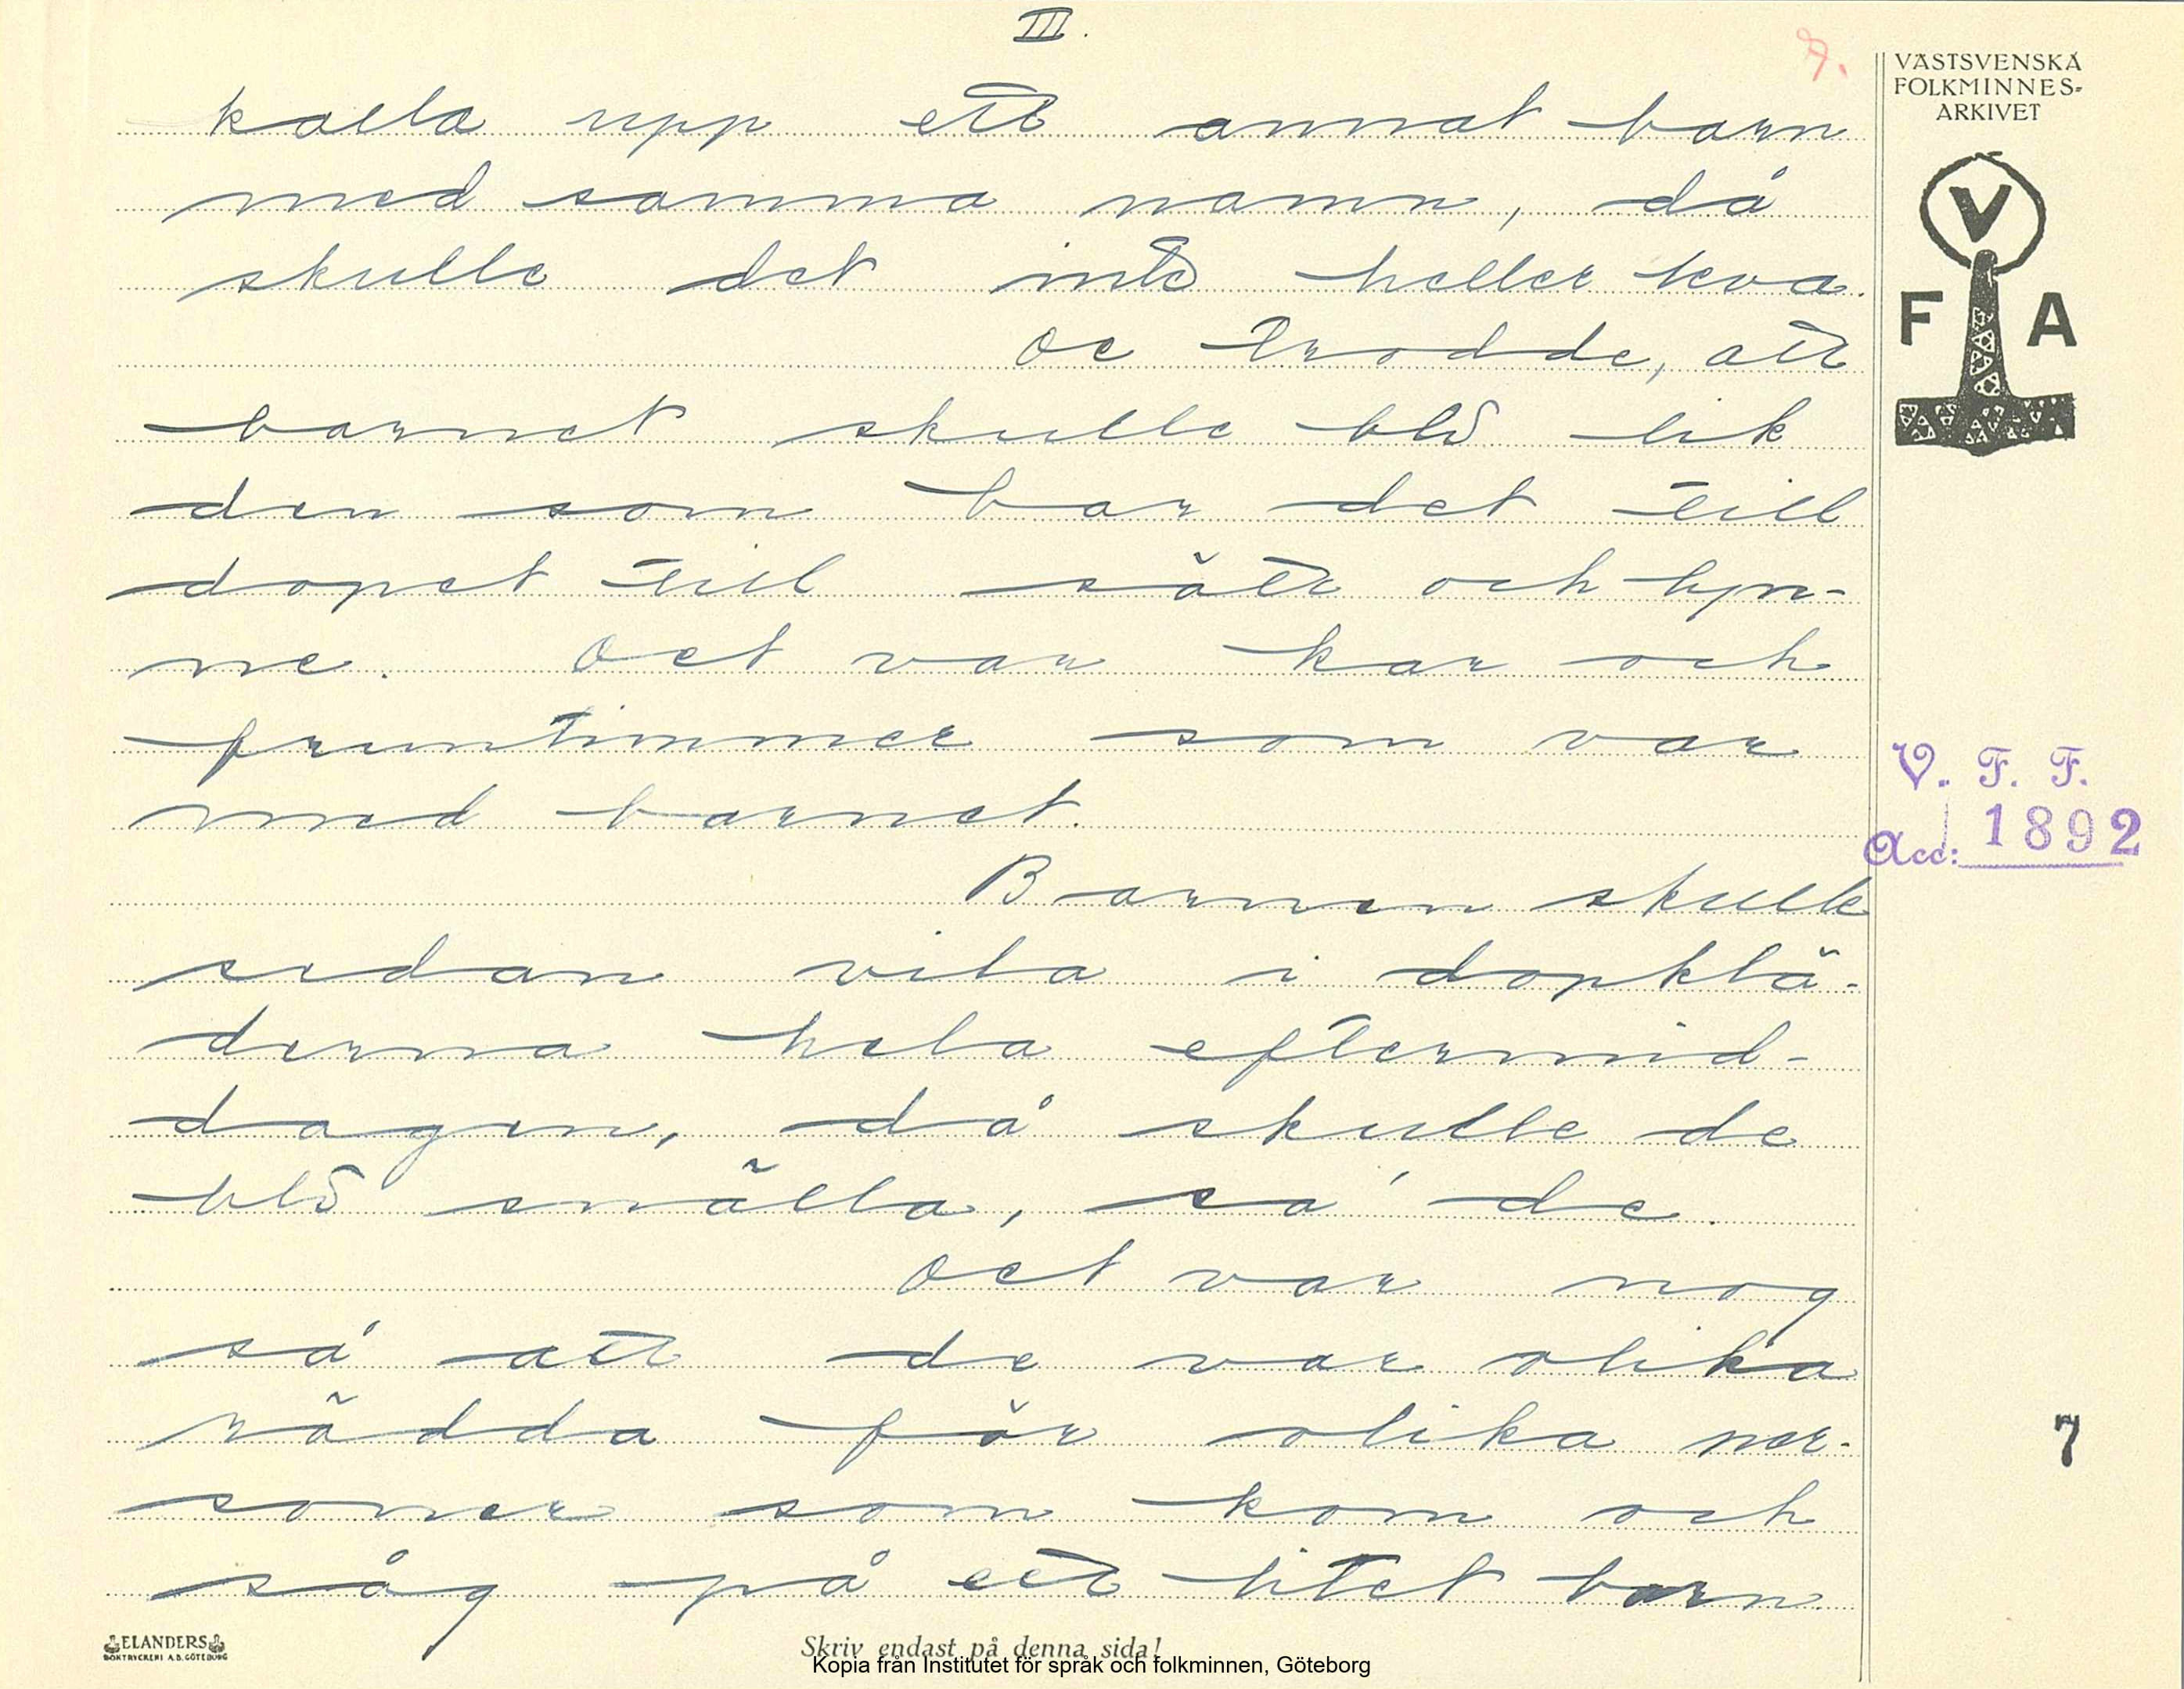 III.
7.
VÄSTSVENSKA
FOLKMINNES-
ARKIVET
V
F A
kalla upp ett annat barn
med samma namn, då
skulle det inte heller leva.
De trodde, att
barnet skulle bli lik
den som bar det till
dopet till sätt och lyn-
ne. Det var kar och
fruntimmer som var
med barnet.
V. F. F.
Acc: 1892
Barnen skulle
sedan vila i dopklä-
derna hela eftermid-
dagen, då skulle de
bli snälla, sa' de.
Det var nog
så att de var olika
rädda för olika per-
soner som kom och
såg på ett litet barn
7
ELANDERS
BOKTRYCKERI A.B. GÖTEBORG
Skriv endast på denna sida!
Kopia från Institutet för språk och folkminnen, Göteborg